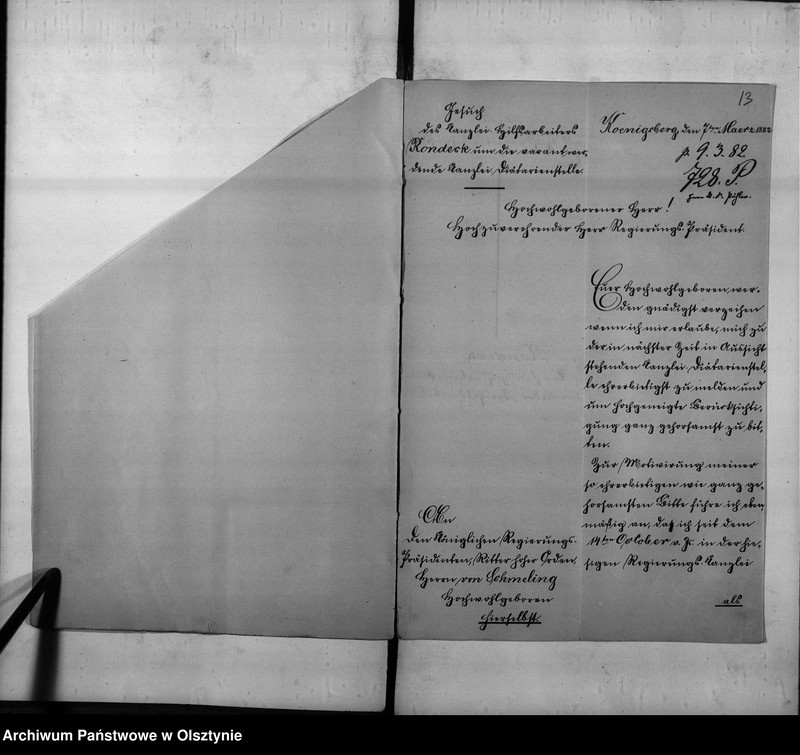 13
Gesuch
des Kanzlei-Hilfsarbeiters
Rondeck um die vacant wer-
dende Kanzlei-Diätarienstelle.
Koenigsberg, den 7ten Maerz 1882
p. 9. 3. 82
728. P.
Hochwohlgeborener Herr!
Hochzuverehrender Herr Regierungs-Präsident.
Euer Hochwohlgeboren wer-
den gnädigst verzeihen
wenn ich mir erlaube, mich zu
der in nächster Zeit in Aussicht
stehenden Kanzlei-Diätarienstel-
le ehrerbietigst zu melden und
um hochgeneigte Berücksichti-
gung ganz gehorsamst zu bit-
ten.
Zur Motivirung meiner
so ehrerbietigen wie ganz ge-
horsamsten Bitte führe ich
mäßig an, daß ich seit dem
14ten October v. Js. in der hie-
sigen Regierungs-Kanzlei
als
An
den Königlichen Regierungs-
Präsidenten, Ritter hoher Orden,
Herrn von Schmeling
Hochwohlgeboren
hierselbst.
Archiwum Państwowe w Olsztynie